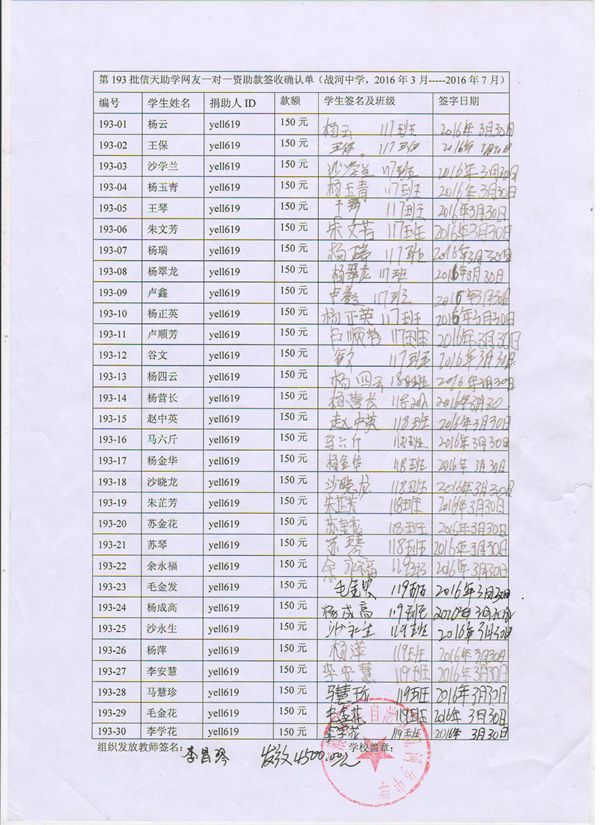 第 193 批信天助学网友一对一资助款签收确认单（战河中学，2016 年 3 月-----2016 年 7 月）
编号 学生姓名 捐助人 ID 款额 学生签名及班级 签字日期
193-01 杨云 yell619 150 元 杨云 117班 2016年3月30日
193-02 王保 yell619 150 元 王保 117班 2016年3月30日
193-03 沙学兰 yell619 150 元 沙学兰 117班 2016年3月30日
193-04 杨玉青 yell619 150 元 杨玉青 117班 2016年3月30日
193-05 王琴 yell619 150 元 王琴 117班 2016年3月30日
193-06 朱文芳 yell619 150 元 朱文芳 117班 2016年3月30日
193-07 杨瑞 yell619 150 元 杨瑞 117班 2016年3月30日
193-08 杨翠龙 yell619 150 元 杨翠龙 117班 2016年3月30日
193-09 卢鑫 yell619 150 元 卢鑫 117班 2016年3月30日
193-10 杨正英 yell619 150 元 杨正英 117班 2016年3月30日
193-11 卢顺芳 yell619 150 元 117班 2016年3月30日
193-12 谷文 yell619 150 元 谷文 117班 2016年3月30日
193-13 杨四云 yell619 150 元 杨四云 118班 2016年3月30日
193-14 杨营长 yell619 150 元 杨营长 118班 2016年3月30
193-15 赵中英 yell619 150 元 赵中英 118班 2016年3月30日
193-16 马六斤 yell619 150 元 马六斤 118班 2016年3月30日
193-17 杨金华 yell619 150 元 杨金华 118班 2016年3月30日
193-18 沙晓龙 yell619 150 元 沙晓龙 118班 2016年3月30日
193-19 朱芷芳 yell619 150 元 朱芷芳 118班 2016年3月30日
193-20 苏金花 yell619 150 元 苏金花 118班 2016年3月30日
193-21 苏琴 yell619 150 元 苏琴 118班 2016年3月30日
193-22 余永福 yell619 150 元 余永福 119班 2016年3月30日
193-23 毛金发 yell619 150 元 毛金发 119班 2016年3月30日
193-24 杨成高 yell619 150 元 杨成高 119班 2016年3月30日
193-25 沙永生 yell619 150 元 沙永生 119班 2016年3月30日
193-26 杨萍 yell619 150 元 杨萍 119班 2016年3月30日
193-27 李安慧 yell619 150 元 李安慧 119班 2016年3月30日
193-28 马慧珍 yell619 150 元 马慧珍 119班 2016年3月30日
193-29 毛金花 yell619 150 元 毛金花 119班 2016年3月30日
193-30 李学花 yell619 150 元 李学花 119班 2016年3月30日
组织发放教师签名： 发放4500.00元 学校盖章：